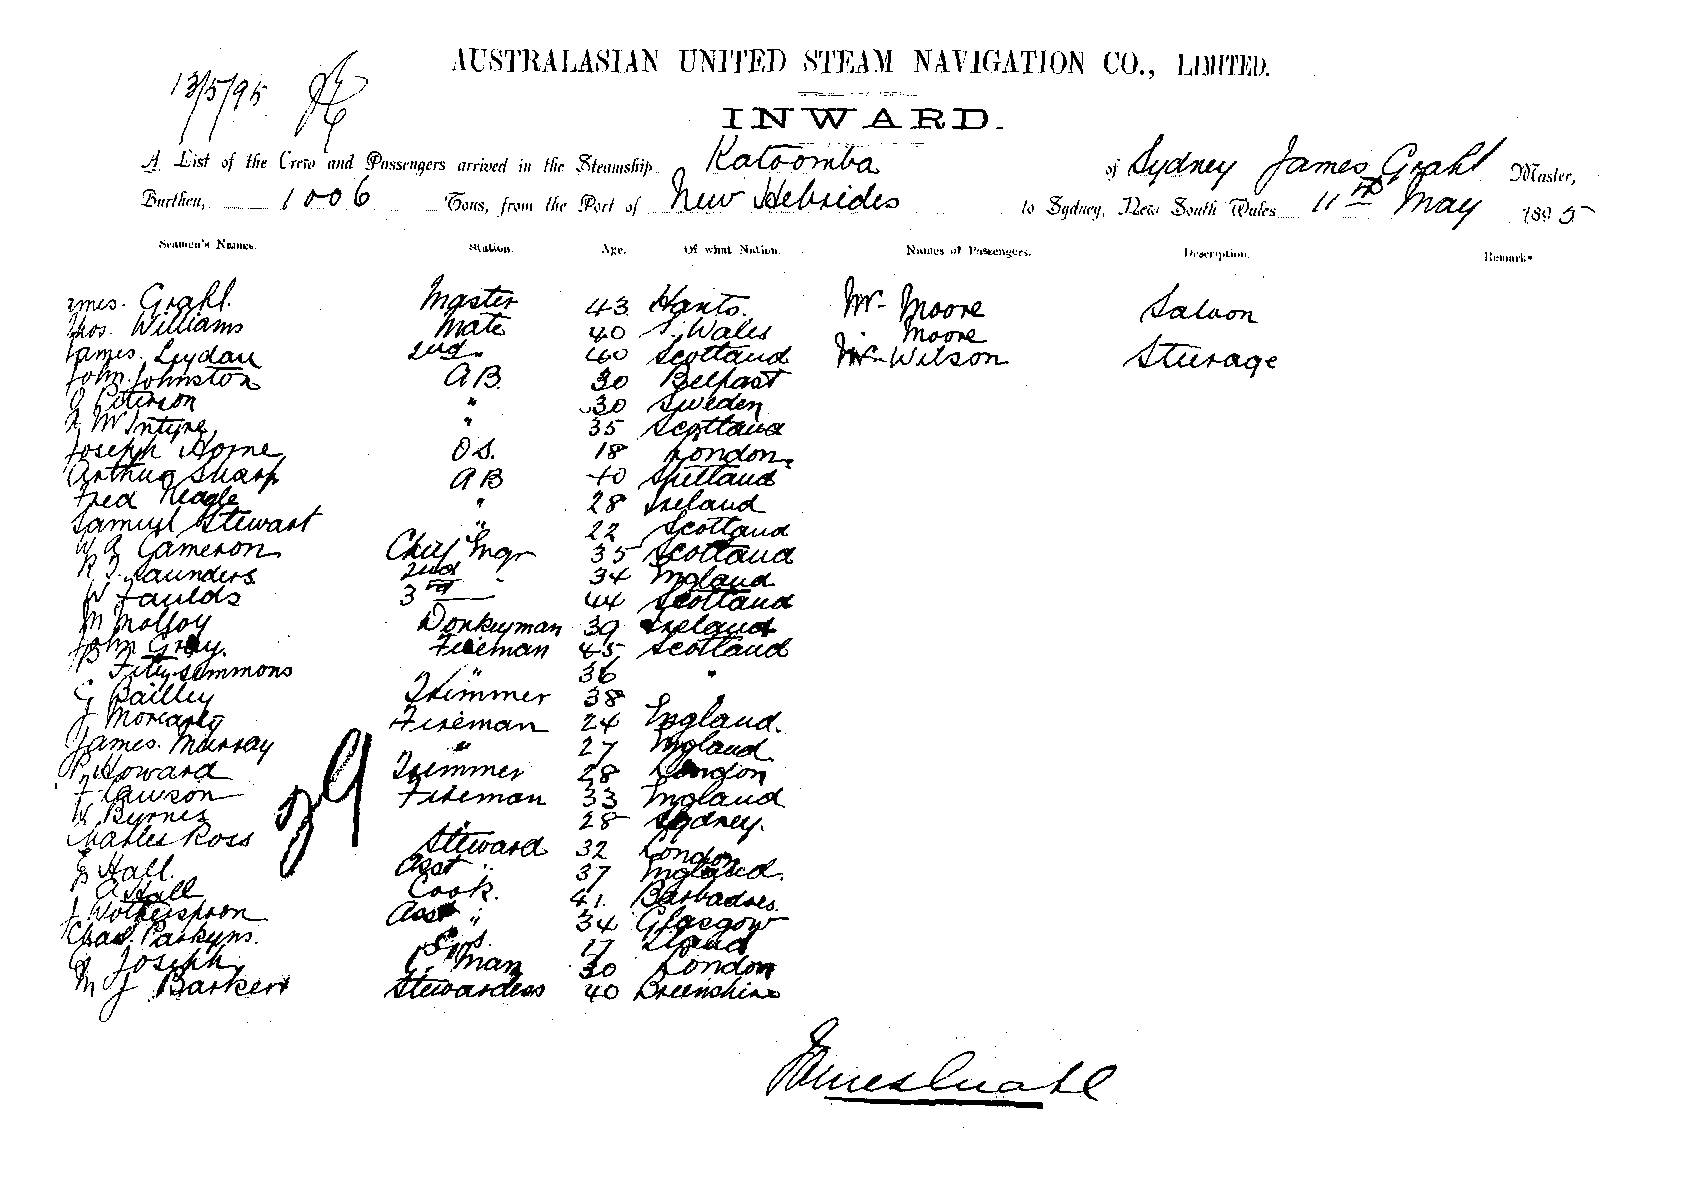 13/5/95
AUSTRALASIAN UNITED STEAM NAVIGATION CO., LIMITED.
INWARD.
A List of the Crew and Passengers arrived in the Steamship Katoomba of Sydney James Grahl Master,
Burthen, 1006 Tons, from the Port of New Hebrides to Sydney, New South Wales 11th May 1895
Seamen's Names. Station. Age. Of what Nation. Names of Passengers. Description. Remarks
ames. Grahl. Master 43 Hants. Mr Moore Saloon
hos. Williams Mate 40 S. Wales Moore
James. Lydau 2nd. 40 Scotland Mr Wilson Sturage
John Johnston AB. 30 Belfast
Peterson " 30 Sweden
McIntyre " 35 Scotland
Joseph Horne OS. 18 London
Arthur Sharp AB 40 Shetland
Fred Neagle " 28 Ireland
Samuel Stewart " 22 Scotland
W A Cameron Chief Engr 35 Scotland
Saunders 2nd " 34 England
W Faulds 3rd 44 Scotland
M Molloy Donkeyman 39 Ireland
John Gray. Fireman 45 Scotland
Fitzsimmons " 36 "
G Bailley Trimmer 38
J Fireman 24 England.
James. Murray " 27 England
Howard Trimmer 28 London
F Lawson Fireman 33 England
W Byrnes " 28 Sydney.
Charles Ross Steward 32 London
Hall. Asst " 37 England.
A Hall Cook. 41. Barbadoes
J Wotherspoon Asst " 34 Glasgow
Chas. Parkyns. 17
Joseph man 30 London
M J Barker Stewardess 40 
29
James Grahl